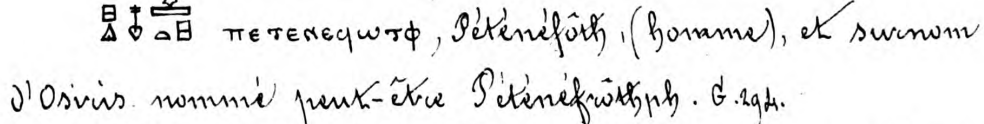 ⲡⲉⲧⲉⲛⲉϥⲱⲧⲫ, Péténéfôth, (homme), et surnom
d'Osiris nommé peut-être Péténéfrôthph. G. 294.